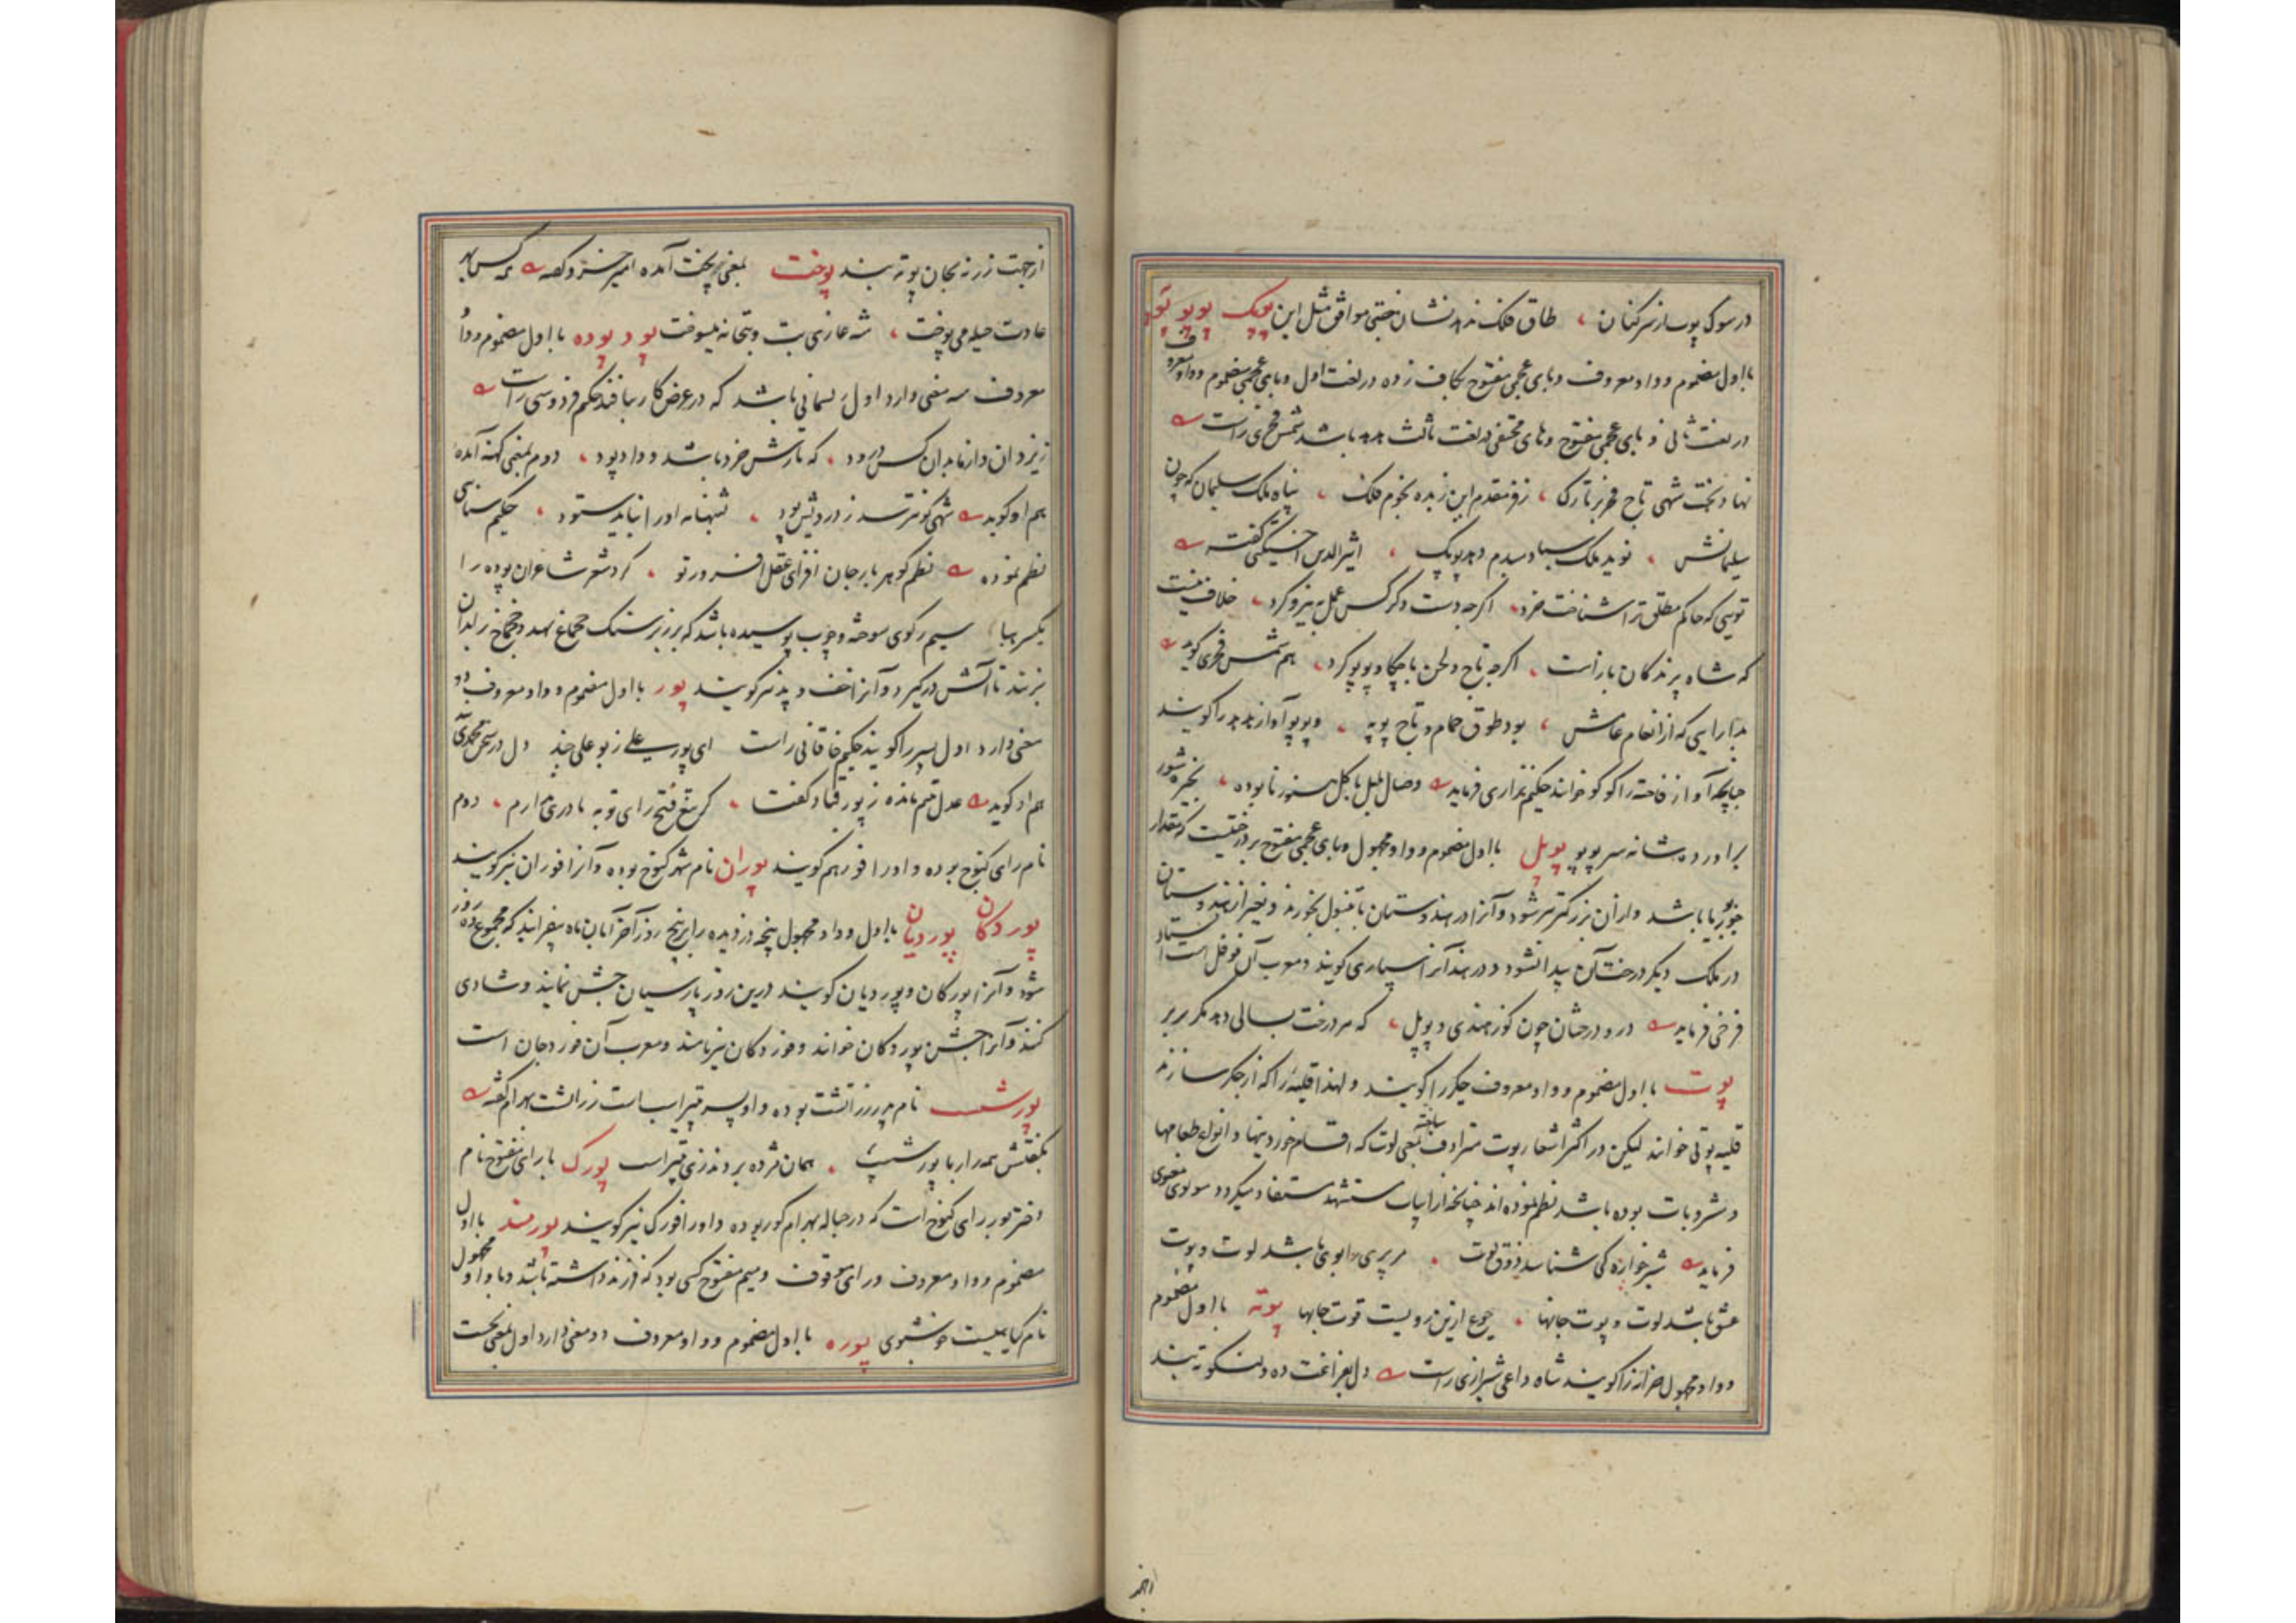 در سوک پوسار سرکنان ، طاق فلک ندید نشان جفتی موافق مثل این پوپک پوپو پوپه
با اول مضموم و واو معروف و بای عجمی مفتوح بکاف زده در لغت اول و بای عجمی مضموم و واو معروف
در لغت ثانی و بای عجمی مفتوح و های مختفی در لغت ثالث هدهد باشد شمس فخری راست
نهاد تخت شهی تاج فخر بر تارک ، ز فر مقدم این زبده نجوم فلک ، پناه ملک سلیمان که چون
سلیمانش ، نوید ملک سبا دمبدم دهد پوپک ، اثیرالدین اخسیکتی گفته
تویی که حاکم مطلق ترا شناخت خرد ، اگرچه دست دگر کس عمل به نیرو کرد ، خلاف نیست
که شاه پرندگان باز است ، اگرچه تاج ولحن با چکاو و پوپو کرد ، هم شمس فخری گوید
بدارایی که از انعام عامش ، بود طوق حمام و تاج پوپه ، و پوپو آواز هدهد را گویند
چنانچه آواز فاخته را کوکو خوانند حکیم نزاری فرماید وصال بلبل با گل هنوز نابوده ، بخیره شور
برآورده شانه سر پوپو پوپل با اول مضموم و واو مجهول و بای عجمی مفتوح بر درختیست که بمقدار
جوزبویا باشد و از آن بزرگتر میشود و آنرا در هندوستان با تنبول بخورند و بغیر از هندوستان
در ملک دیگر درخت آن پیدا نشود و در هند آنرا سپاری گویند و معرب آن فوفل است استاد
فرخی فرماید درو درختان چون گوز هندی و پوپل ، که هر درخت بسالی دهد مکرر بر
پوت با اول مضموم و واو معروف جگر را گویند و لهذا قلیه را که از جگر سازند
قلیه پوتی خوانند لیکن در اکثر اشعار پوت مترادف یافته بمعنی لوت که اقسام خوردنیها و انواع طعامها
و مشروبات بوده باشد نظم نموده اند چنانچه از ابیات مستشهد مستفاد میگردد مولوی معنوی
فرماید شیرخواره کی شناسد ذوق لوت ، مر پری را بوی باشد لوت و پوت
عشق باشد لوت و پوت جانها ، جوع ازین رویست قوت جانها پوته با اول مضموم
و واو مجهول خزانه را گویند شاه داعی شیرازی راست دل بفراغت ده و لنگوته بند
از جهت زر نه بجان پوته بند پوخت بمعنی پخت آمده امیر خسرو گفته نه کس بد
عادت حیله می پوخت ، شه غازی بت و بتخانه میسوخت پود پوده با اول مضموم و واو
معروف سه معنی دارد اول ریسمانی باشد که در عرض کار بیافند حکیم فردوسی راست
ز یزدان و از ما بدان کس درود ، که تارش خرد باشد و داد پود ، دوم بمعنی کهنه آمده
هم او گوید شهی کو نترسد ز درویش پود ، شهنامه او را نباید ستود ، حکیم سنایی
نظم نموده نظم گوهربار جان افزای عقل افروز تو ، کرد شعر شاعران پوده را
یکسر هبا سیم رکوی سوخته و چوب پوسیده باشد که بر زبر سنگ چقماق نهند و چقماق بر آن
بزنند تا آتش درگیرد و آنرا خف و پد نیز گویند پور با اول مضموم و واو معروف دو
معنی دارد اول پسر را گویند حکیم خاقانی راست ای پور علی ز بوعلی چند دل در سخن محمدی
هم او گوید عدل یتیم مانده ز پور قباد گفت ، کز تیغ فتح رای توبه مادری ندارم ، دوم
نام رای کنوج بوده و او را فور هم گویند پوران نام شهر کنوج بوده و آنرا فوران نیز گویند
پوردکان پوردیان با اول و واو مجهول پنجه دزدیده را بر پنج روز آخر آبان ماه بیفزایند که مجموع ده روز
شود و آنرا پورکان و پوردیان گویند درین روز پارسیان جشن نمایند و شادی
کنند و آنرا جشن پوردکان خوانند و فوردکان نیز نامند و معرب آن فوردجان است
پورشسب نام پدر زراتشت بوده و او پسر پتیراسب است زراتشت بهرام گفته
بگفتش همه راز با پورشسپ ، همان مژده بردند زی پتیراسب پورک با رای مفتوح نام
دختر پور رای کنوج است که در حباله بهرام گور بوده و او را فورک نیز گویند پورمند با اول
مضموم و واو معروف و رای موقوف و میم مفتوح کسی بود که فرزند داشته باشد و با واو مجهول
نام گیاهیست خوشبوی پوره با اول مضموم و واو معروف دو معنی دارد اول بمعنی نخست